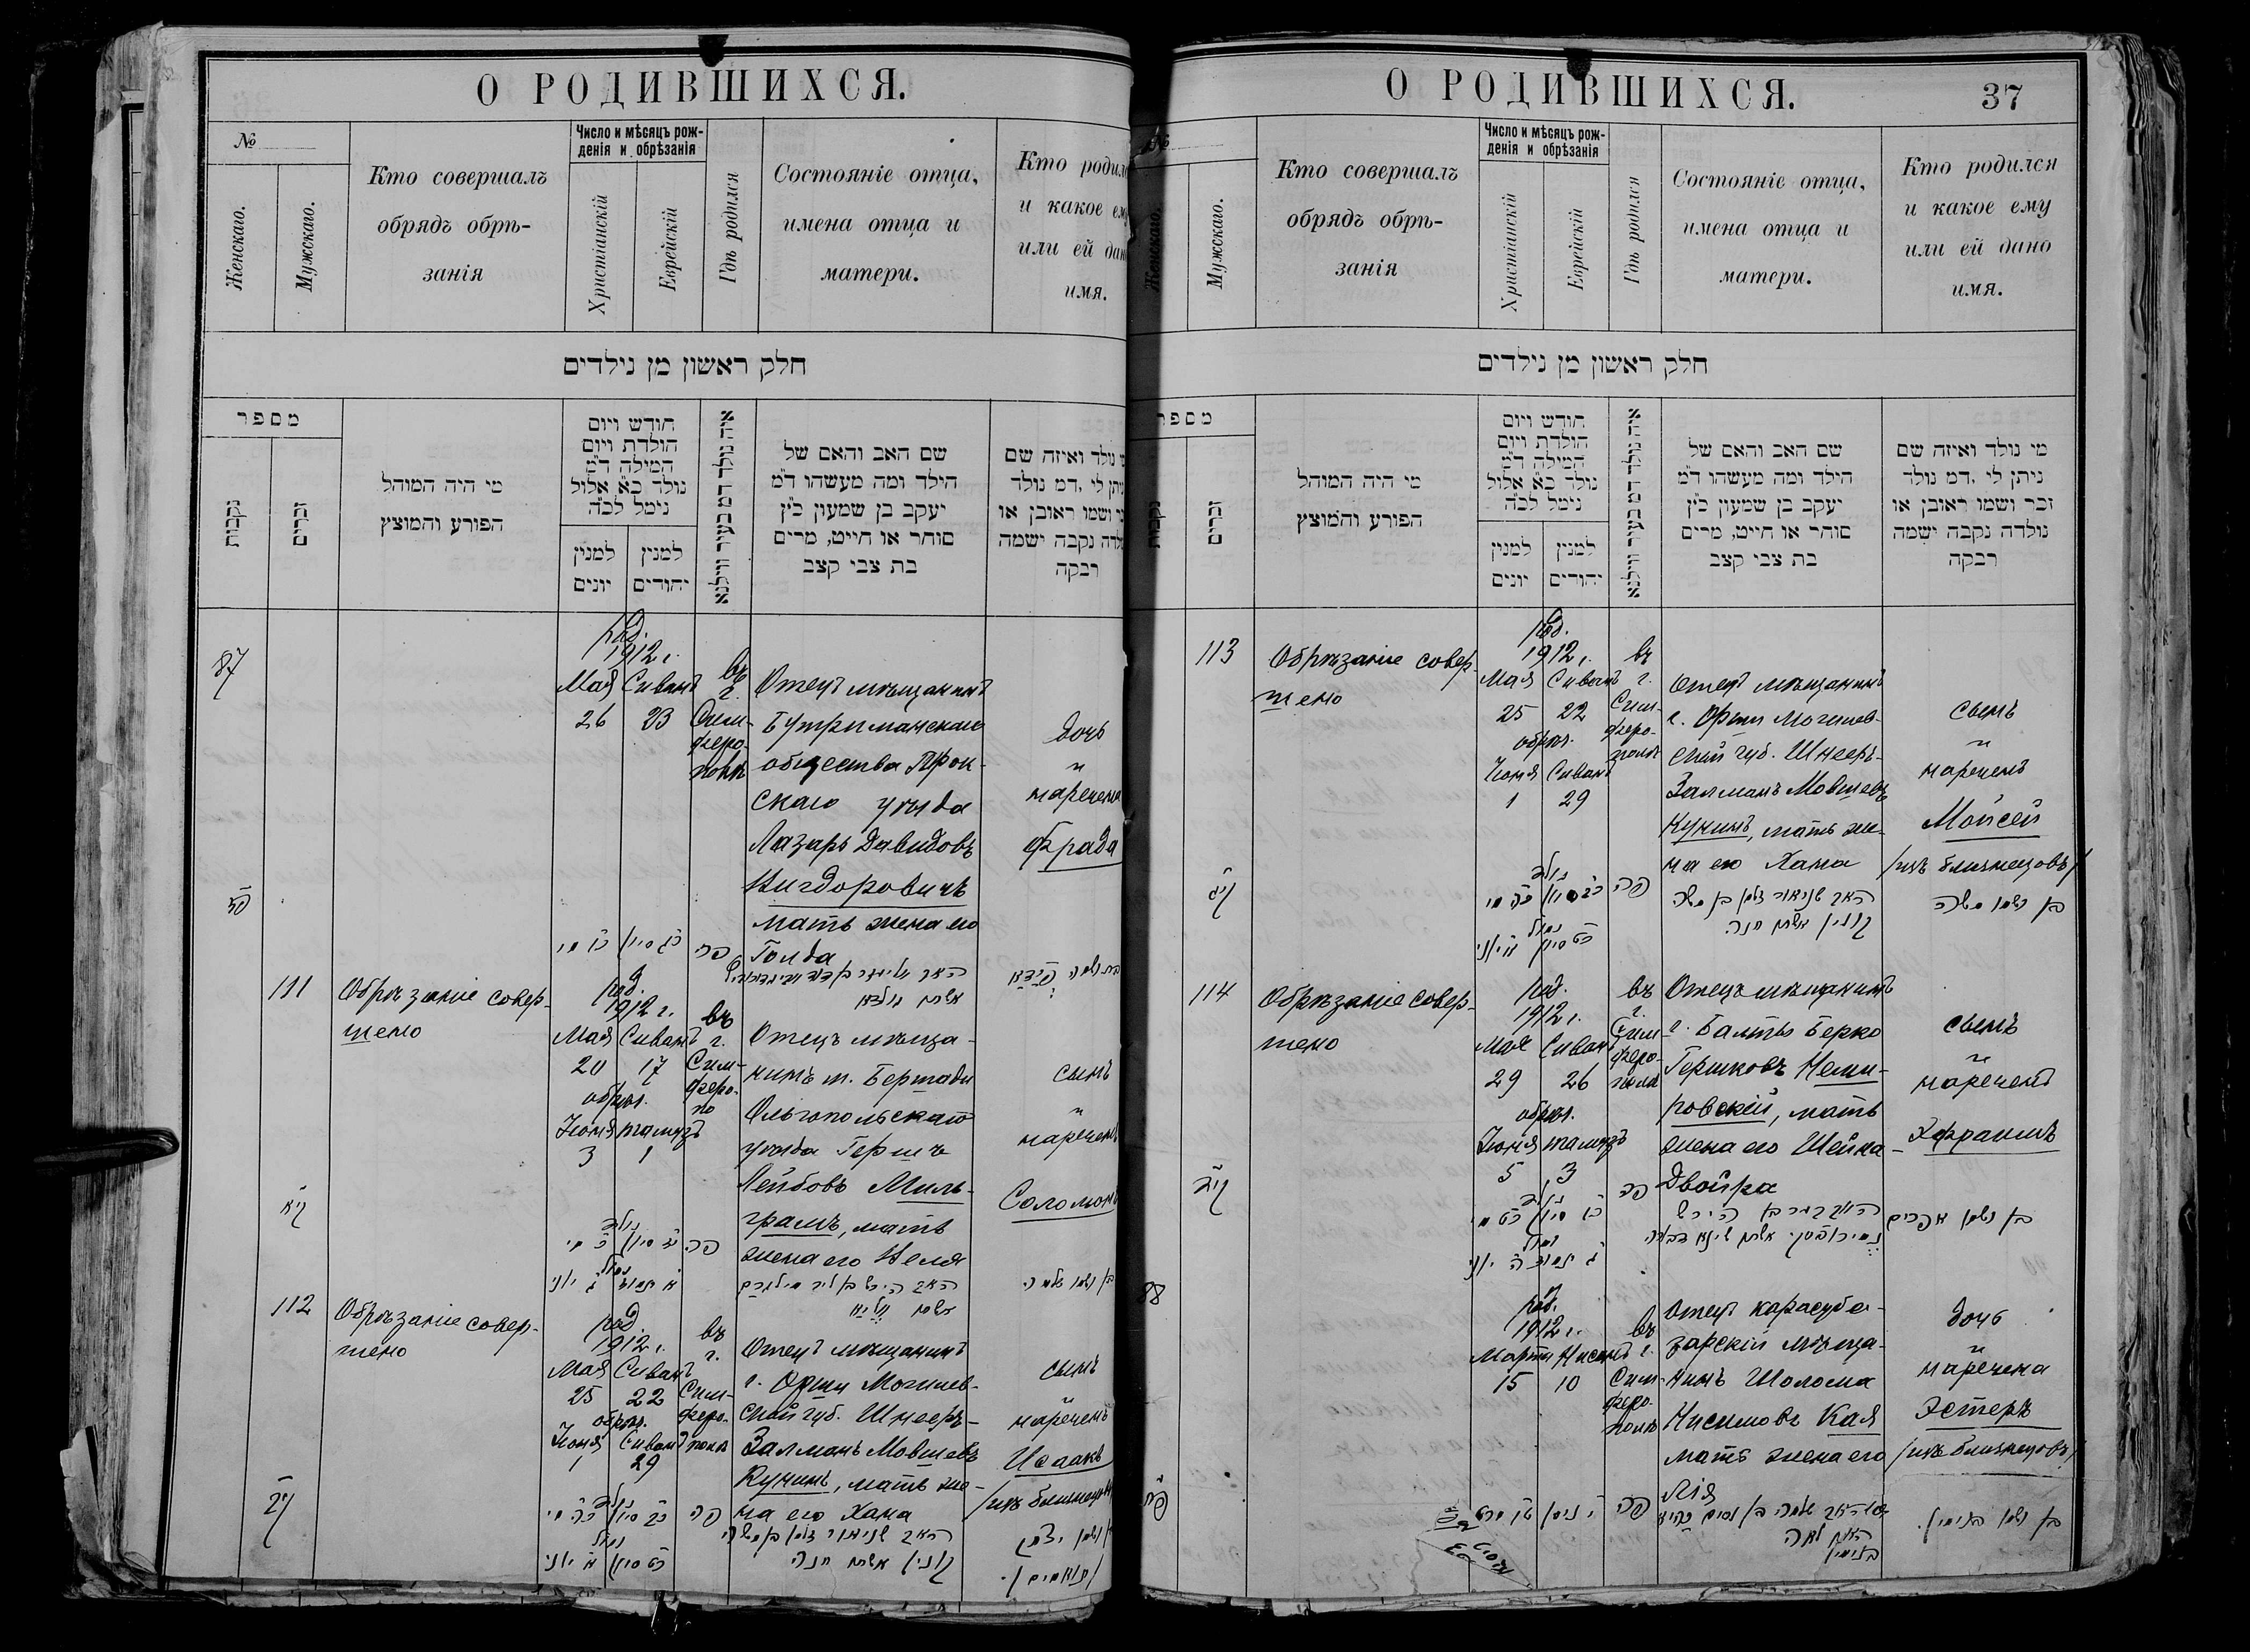 О РОДИВШИХСЯ.
№
Женскаго.
Мужскаго.
Кто совершалъ
обрядъ обрѣ-
занія
Число и мѣсяцъ рож-
денія и обрѣзанія
Христіанскій
Еврейскій
Гдѣ родился
Состояніе отца,
имена отца и
матери.
Кто родил
и какое ему
или ей дан
имя.
חלק ראשון מן נילדים
מספר
נקבות
זכרים
מי היה המוהל
הפורע והמוצץ
חודש ויום
הולדת ויום
המילה ד"מ
נולד כ"א אלול
נימל לכ"ה
למנין
יונים
למנין
יהודים
איה נולד דמ בעיר ווילנא
שם האב והאם של
הילד ומה מעשהו ד"מ
יעקב בן שמעון כ"ין
סוחר או חייט, מרים
בת צבי קצב
מי נולד ואיזה שם
ניתן לי, דמ נולד
ושמו ראובן או
נולדה נקבה ישמה
רבקה
87
род.
1912 г.
Мая Сиванъ
26 23
въ
г.
Сим-
феро-
полѣ
Отецъ мѣщанинъ
Бутриманскаго
общества Трок-
скаго уѣзда
Лазарь Давидовъ
Вигдоровичъ
мать жена его
Голда
дочь
и
наречена
Фрада
פז
כג סיון כו מי
פה
111
Обрѣзаніе совер-
шено
род.
1912 г.
Мая Сиванъ
20 17
обрѣз.
Іюня тамузъ
3 1
въ
г.
Сим-
феро-
по
Отецъ мѣща-
нинъ м. Бершади
Ольгопольскаго
уѣзда Гершъ
Лейбовъ Миль-
грамъ, мать
жена его Неля
сынъ
и
нареченъ
Соломонъ
קיא
נולד
פה
בן ושמו שלמה
112
Обрѣзаніе совер-
шено
род.
1912 г.
Мая Сиванъ
25 22
обрѣз.
Іюня Сиванъ
1 29
въ
г.
Сим-
феро-
полѣ
Отецъ мѣщанинъ
г. Орши Могилев-
ской губ. Шнееръ-
Залманъ Мовшевъ
Кунинъ, мать же-
на его Хана
сынъ
и
нареченъ
Исаакъ
/изъ близнецовъ/
קיב
נולד
כב סיון כה מי
פה
האב שניאור זלמן בן משה
קונין אשתו חנה
ושמו יצחק
/תאומים/.
О РОДИВШИХСЯ.
37
№
Женскаго.
Мужскаго.
Кто совершалъ
обрядъ обрѣ-
занія
Число и мѣсяцъ рож-
денія и обрѣзанія
Христіанскій
Еврейскій
Гдѣ родился
Состояніе отца,
имена отца и
матери.
Кто родился
и какое ему
или ей дано
имя.
חלק ראשון מן נילדים
מספר
נקבות
זכרים
מי היה המוהל
הפורע והמוצץ
חודש ויום
הולדת ויום
המילה ד"מ
נולד כ"א אלול
נימל לכ"ה
למנין
יונים
למנין
יהודים
איה נולד דמ בעיר ווילנא
שם האב והאם של
הילד ומה מעשהו ד"מ
יעקב בן שמעון כ"ין
סוחר או חייט, מרים
בת צבי קצב
מי נולד ואיזה שם
ניתן לי, דמ נולד
זכר ושמו ראובן או
נולדה נקבה ישמה
רבקה
113
Обрѣзаніе совер-
шено
род.
1912 г.
Мая Сиванъ
25 22
обрѣз.
Іюня Сиванъ
1 29
въ
г.
Сим-
феро-
полѣ
Отецъ мѣщанинъ
г. Орши Могилев-
ской губ. Шнееръ-
Залманъ Мовшевъ
Кунинъ, мать же-
на его Хана
сынъ
и
нареченъ
Мойсей
/изъ близнецовъ/
קיג
נולד
כב סיון כה מי
פה
האב שניאור זלמן בן משה
קונין אשתו חנה
בן ושמו משה
114
Обрѣзаніе совер-
шено
род.
1912 г.
Мая Сиванъ
29 26
обрѣз.
Іюня тамузъ
5 3
въ
г.
Сим-
феро-
полѣ
Отецъ мѣщанинъ
г. Балты Берко
Гершковъ Неми-
ровскій, мать
жена его Шейна-
Двойра
сынъ
и
нареченъ
Эфраимъ
קיד
נולד
כו סיון כט מי
פה
בן ושמו אפרים
88
род.
1912 г.
Марта Нисанъ
15 10
въ
г.
Сим-
феро-
полѣ
Отецъ карасуба-
зарскій мѣща-
нинъ Шолома
Нисимовъ Кая
мать жена его
Лія
дочь
и
наречена
Эстеръ
/изъ близнецовъ/
פח
פה
בן ושמו בנימין.